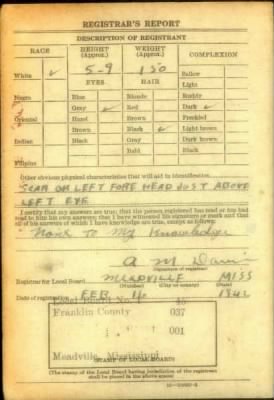 REGISTRAR'S REPORT
DESCRIPTION OF REGISTRANT
RACE HEIGHT (Approx.) WEIGHT (Approx.) COMPLEXION
White ✓ 5-9 150 Sallow
EYES HAIR Light
Negro Blue Blonde Ruddy
Gray ✓ Red Dark ✓
Oriental Hazel Brown Freckled
Brown Black ✓ Light brown
Indian Black Gray Dark brown
Bald Black
Filipino
Other obvious physical characteristics that will aid in identification
SCAR ON LEFT FORE HEAD JUST ABOVE
LEFT EYE
I certify that my answers are true; that the person registered has read or has had
read to him his own answers; that I have witnessed his signature or mark and that
all of his answers of which I have knowledge are true, except as follows:
None To My Knowledge
A M
(Signature of registrar)
Registrar for Local Board MEADVILLE MISS
(Number) (City or county) (State)
Date of registration FEB 16 1942
Local Board No. 45
Franklin County 037
001
Meadville, Mississippi
(STAMP OF LOCAL BOARD)
(The stamp of the Local Board having jurisdiction of the registrant
shall be placed in the above space.)